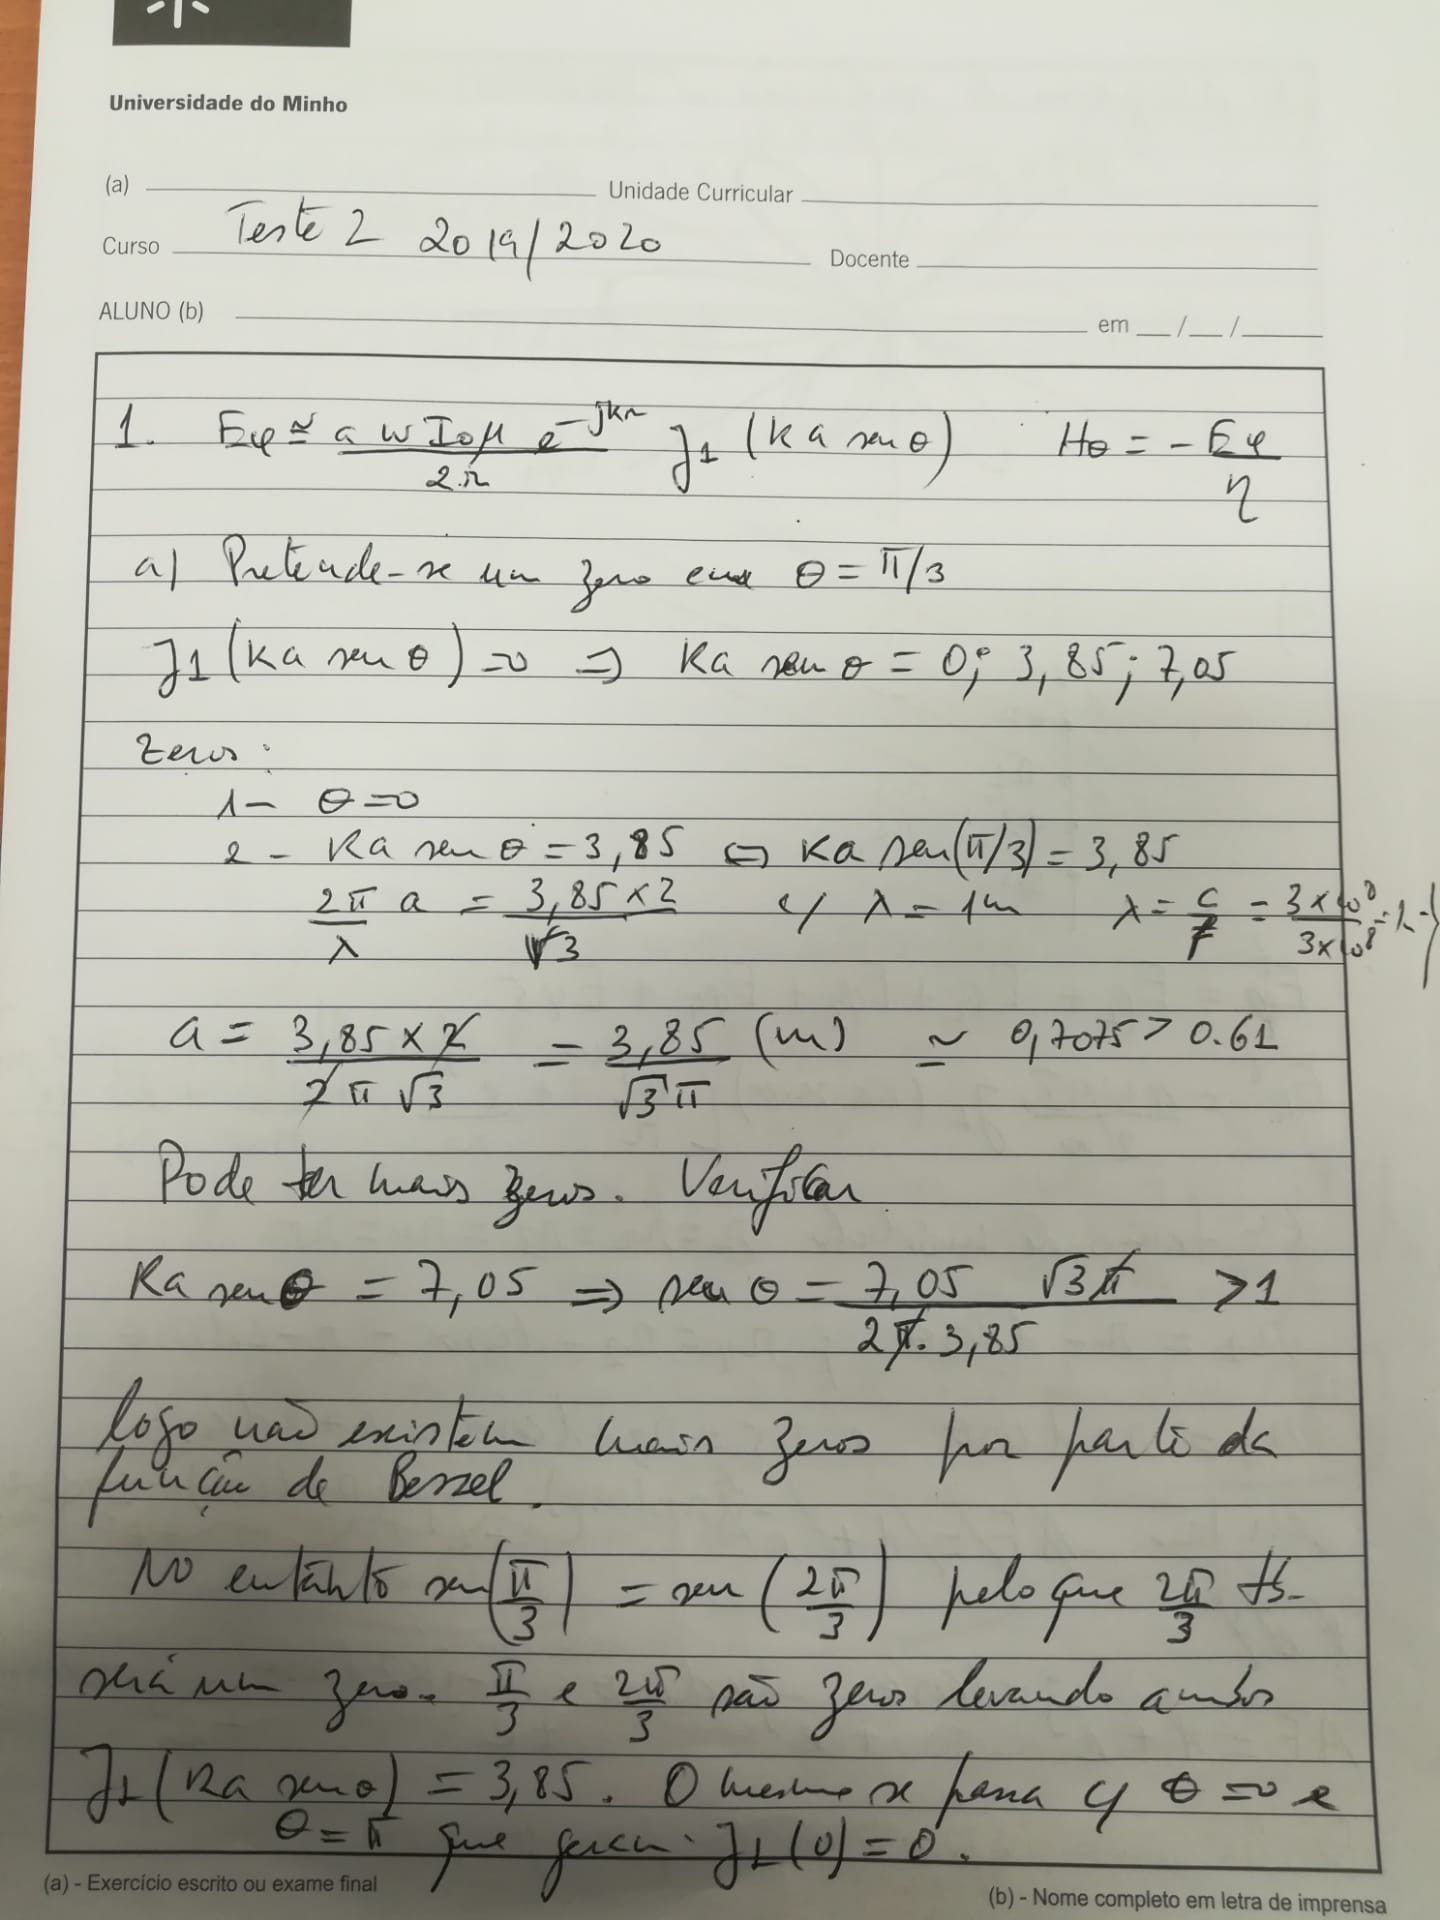 Universidade do Minho
(a) Unidade Curricular
Curso Teste 2 2019/2020 Docente
ALUNO (b) em __/__/____
1. Eφ ≃ a w I₀ μ e^-jkr / 2.r J₁ (Ka sen θ) Hθ = - Eφ / η
a) Pretende-se um zero em θ = π/3
J₁ (Ka sen θ) = 0 ⇒ Ka sen θ = 0; 3,85; 7,05
Zeros:
1 - θ = 0
2 - Ka sen θ = 3,85 ⇔ Ka sen(π/3) = 3,85
2π/λ a = 3,85 × 2 / √3 c/ λ = 1m λ = c/f = 3×10⁸ / 3×10⁸ = 1
a = 3,85 × 2 / 2 π √3 = 3,85 / √3 π (m) ≃ 0,7075 > 0.61
Pode ter mais zeros. Verificar
Ka sen θ = 7,05 ⇒ sen θ = 7,05 √3 π / 2π. 3,85 > 1
logo não existem mais zeros por parte da
função de Bessel.
No entanto sen(π/3) = sen (2π/3) pelo que 2π/3 tb-
será um zero. π/3 e 2π/3 são zeros levando ambos
J₁ (Ka sen θ) = 3,85. O mesmo se passa c/ θ = 0 e
θ = π que geram J₁ (0) = 0.
(a) - Exercício escrito ou exame final
(b) - Nome completo em letra de imprensa